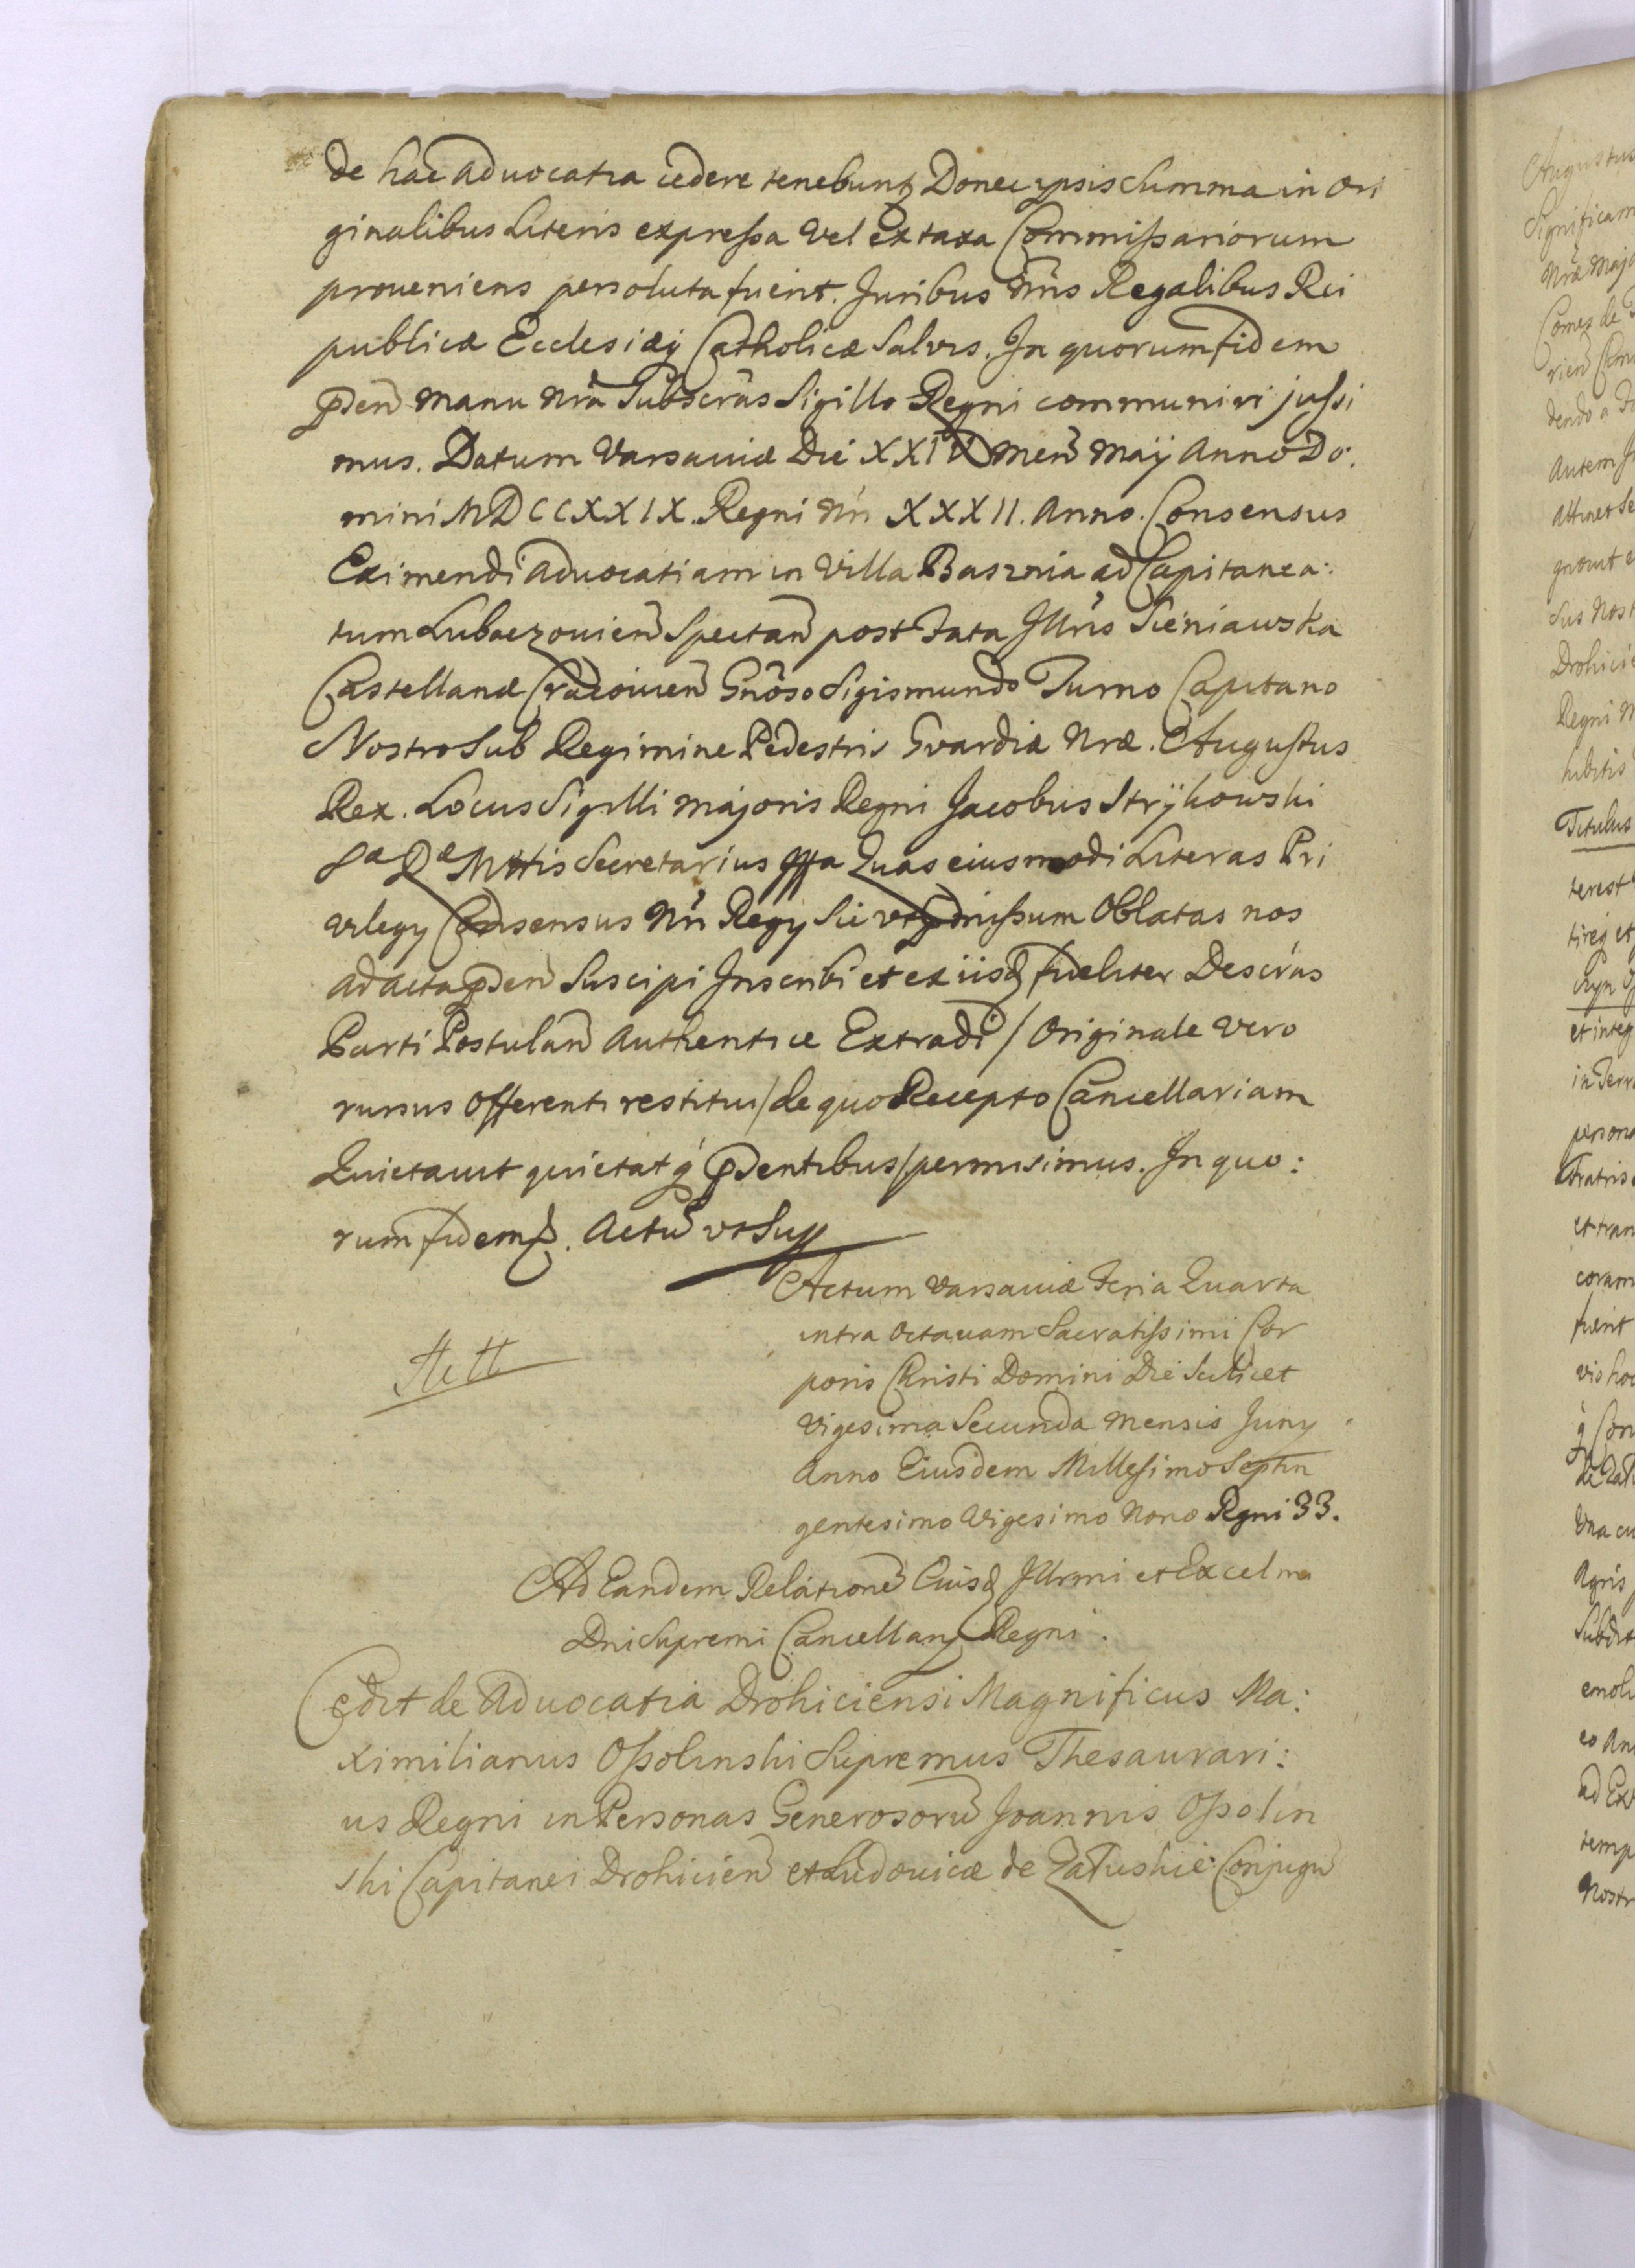 de hac Aduocatia cedere tenebunt Donec ipsis Summa in Ori
ginalibus Literis expressa vel ex taxa Commissariorum
proueniens persoluta fuerit. Juribus Nris Regalibus Rei
publicæ Ecclesiæq Catholicæ Salvis. In quorum fidem
pden manu Nrã Subscras Sigillo Regni communiri jussi
mus. Datum Varsauiæ Die XXIV Men Maij Anno Do:
mini MDCCXXIX. Regni Nri XXXII. Anno. Consensus
Eximendi Aduocatiam in Villa Basznia ad Capitanea:
tum Lubaczouien Spectan post Fata Jllris Sieniawska
Castellanæ Cracouien Gnoso Sigismundo Turno Capitano
Nostro Sub Regimine Pedestris Gvardiæ Nræ. Augustus
Rex. Locus Sigilli Majoris Regni Jacobus Stryikowski
Sæ Ræ Mttis Secretarius Quas eiusmodi Literas Pri
vilegy Consensus Nri Regy Sic vt pmissum Oblatas nos
ad acta pden Suscipi Inscribi et ex iisd fideliter Descras
Parti Postulan Authentice Extradi / Originale vero
rursus Offerenti restitui / de quo Recepto Cancellariam
Quietauit quietatq pdentibus / permisimus. In quo:
rum fidem. Actu vt Sup
Actum Varsauiæ Feria Quarta
intra Octauam Sacratissimi Cor
poris Christi Domini Die Scilicet
Vigesima Secunda Mensis Juny
Anno Eiusdem Millesimo Septin
gentesimo Vigesimo Nono Regni 33.
Ad Eandem Relatione Eiusd Jllrmi et Excelmi
Dni Supremi Cancellary Regni.
Cedit de Aduocatia Drohiciensi Magnificus Ma:
ximilianus Ossolinski Supremus Thesaurari:
us Regni in Personas Generosoru Joannis Ossolin
ski Capitanei Drohicien et Ludouicæ de Załuskie Conjugu